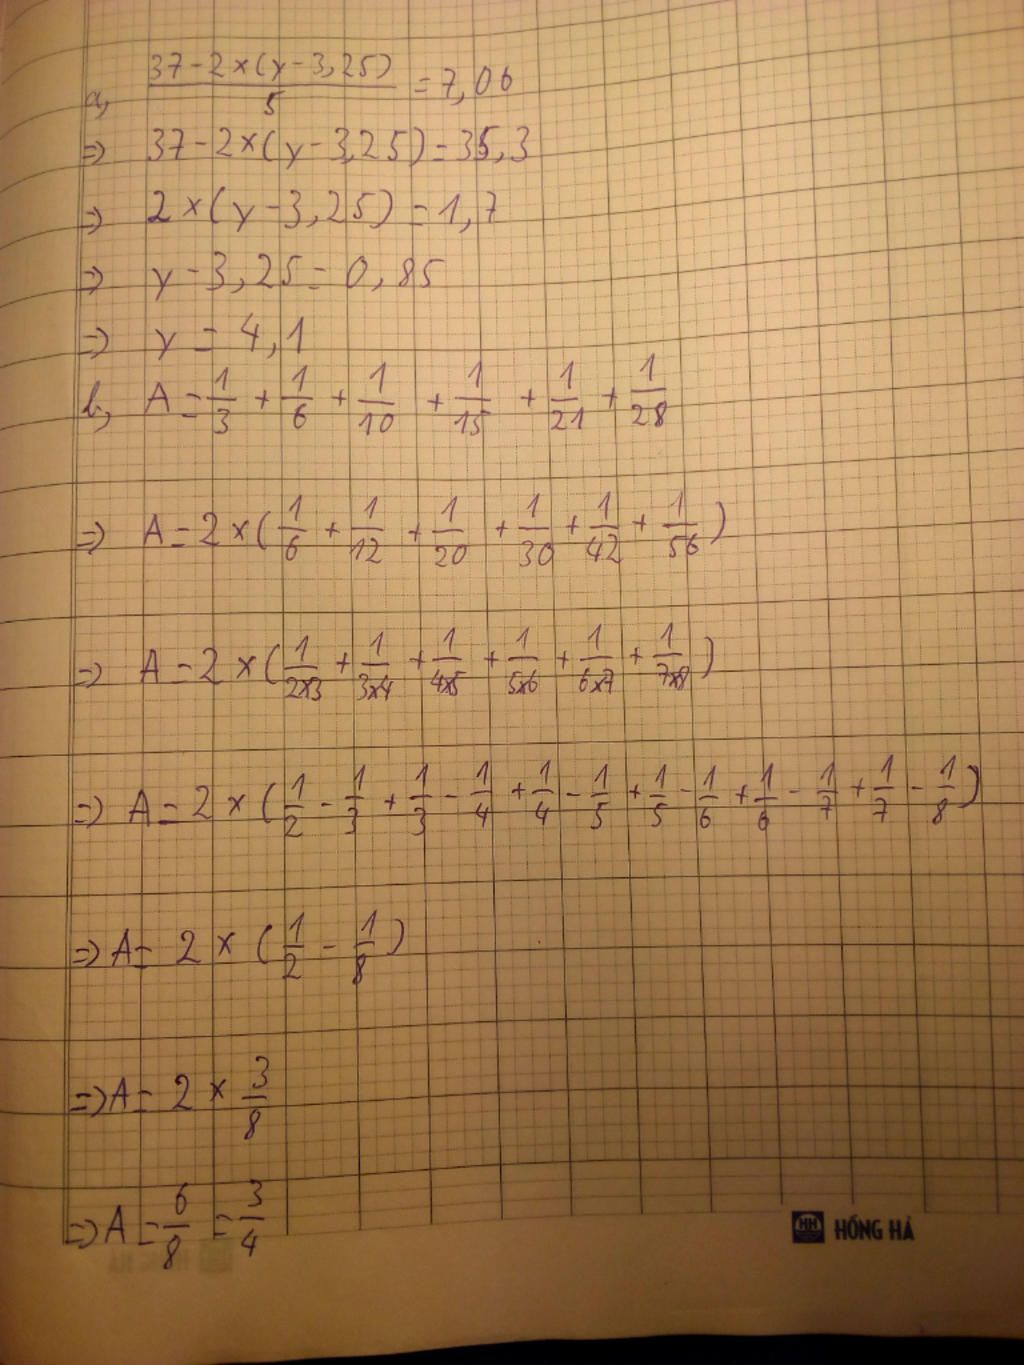 a, \frac{37-2×(y-3,25)}{5} = 7,06
=> 37-2×(y-3,25)=35,3
=> 2×(y-3,25)=1,7
=> y-3,25=0,85
=> y=4,1
b, A = \frac{1}{3} + \frac{1}{6} + \frac{1}{10} + \frac{1}{15} + \frac{1}{21} + \frac{1}{28}
=> A = 2×(\frac{1}{6} + \frac{1}{12} + \frac{1}{20} + \frac{1}{30} + \frac{1}{42} + \frac{1}{56})
=> A = 2×(\frac{1}{2×3} + \frac{1}{3×4} + \frac{1}{4×5} + \frac{1}{5×6} + \frac{1}{6×7} + \frac{1}{7×8})
=> A = 2×(\frac{1}{2} - \frac{1}{3} + \frac{1}{3} - \frac{1}{4} + \frac{1}{4} - \frac{1}{5} + \frac{1}{5} - \frac{1}{6} + \frac{1}{6} - \frac{1}{7} + \frac{1}{7} - \frac{1}{8})
=> A = 2×(\frac{1}{2} - \frac{1}{8})
=> A = 2×\frac{3}{8}
=> A = \frac{6}{8} = \frac{3}{4}
HH HỒNG HÀ